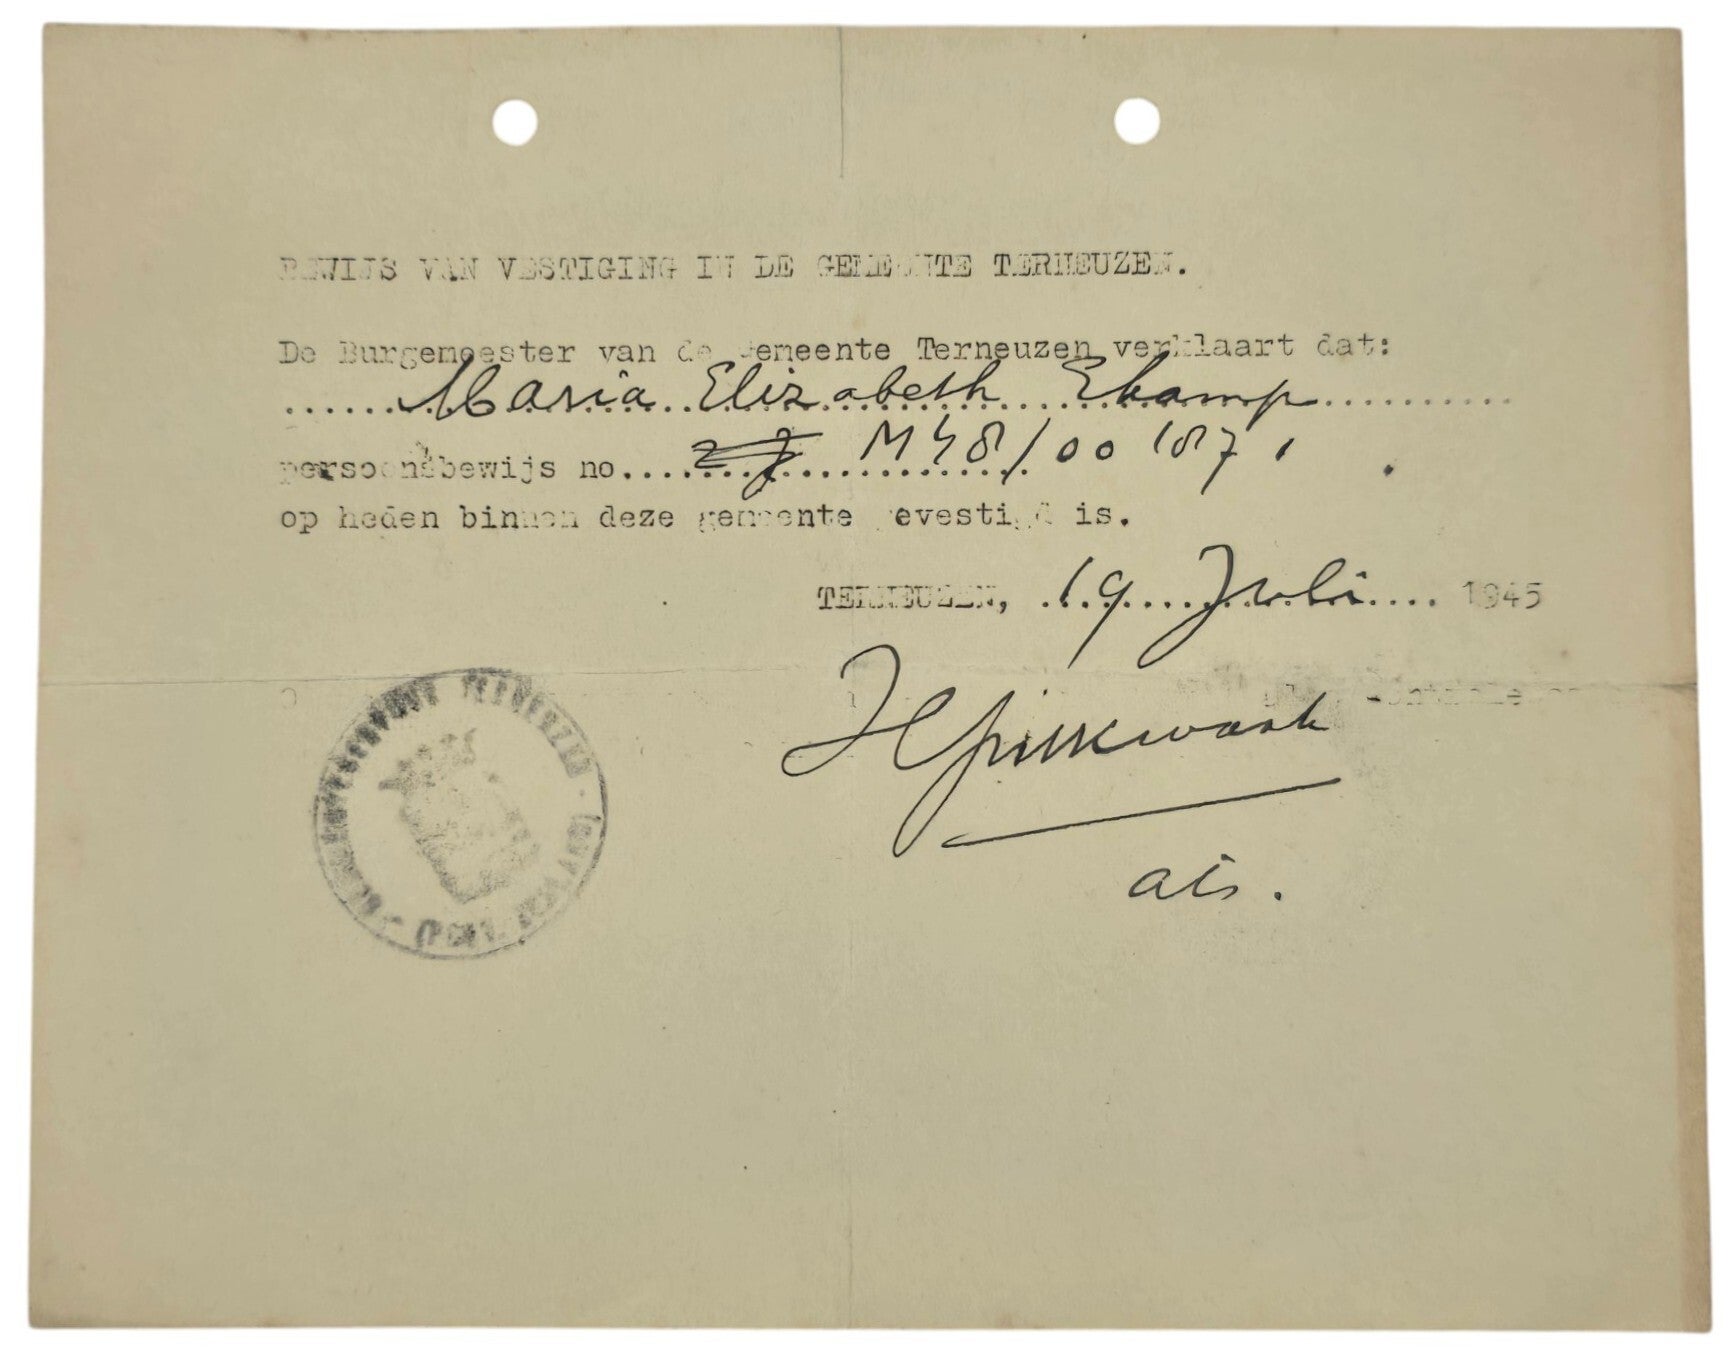 BEWIJS VAN VESTIGING IN DE GEMEENTE TERNEUZEN.
De Burgemeester van de Gemeente Terneuzen verklaart dat:
......Maria Elizabeth Ekamp..........
persoonsbewijs no.... M48/00187.
op heden binnen deze gemeente gevestigd is.
TERNEUZEN, .19 Juli.... 1945
TERNEUZEN